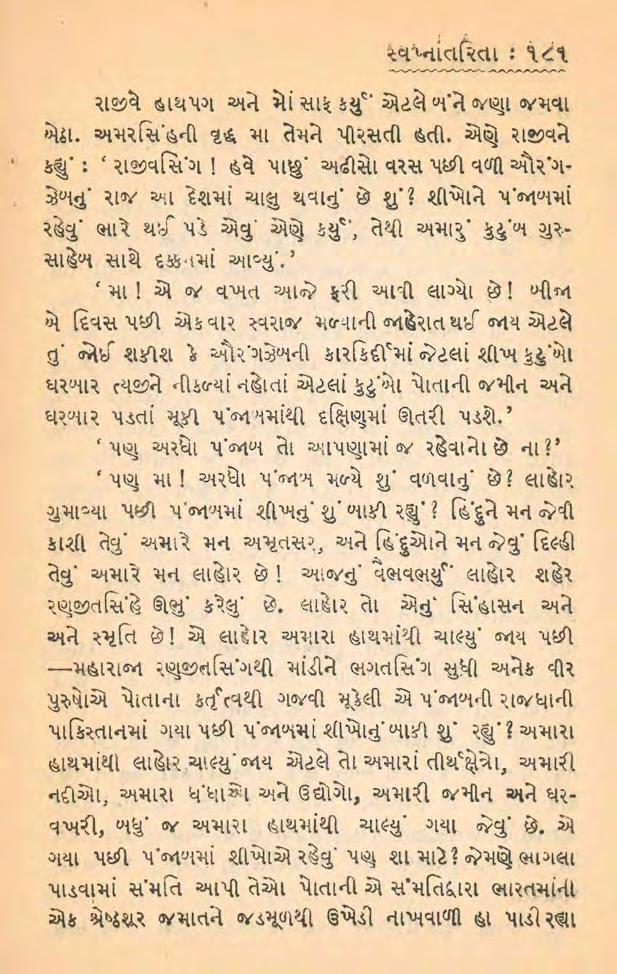 સ્વપ્નાંતરિતા : ૧૮૧
રાજીવે હાથપગ અને મોં સાફ કર્યું એટલે બંને જણા જમવા
બેઠા. અમરસિંહની વૃદ્ધ મા તેમને પીરસતી હતી. એણે રાજીવને
કહ્યું : ‘ રાજીવસિંગ ! હવે પાછું અઢીસો વરસ પછી વળી ઔરંગ-
ઝેબનું રાજ આ દેશમાં ચાલુ થવાનું છે શું? શીખોને પંજાબમાં
રહેવું ભારે થઈ પડે એવું એણે કર્યું, તેથી અમારું કુટુંબ ગુરુ-
સાહેબ સાથે દક્કનમાં આવ્યું.’
‘ મા ! એ જ વખત આજે ફરી આવી લાગ્યો છે! બીજા
બે દિવસ પછી એકવાર સ્વરાજ મળ્યાની જાહેરાત થઈ જાય એટલે
તું જોઈ શકીશ કે ઔરંગઝેબની કારકિર્દીમાં જેટલાં શીખ કુટુંબો
ઘરબાર ત્યજીને નીકળ્યાં નહોતાં એટલાં કુટુંબો પોતાની જમીન અને
ઘરબાર પડતાં મૂકી પંજાબમાંથી દક્ષિણમાં ઊતરી પડશે.’
‘ પણ અરધો પંજાબ તો આપણામાં જ રહેવાનો છે ના?’
‘ પણ મા ! અરધો પંજાબ મળ્યે શું વળવાનું છે? લાહોર
ગુમાવ્યા પછી પંજાબમાં શીખનું શું બાકી રહ્યું? હિંદુને મન જેવી
કાશી તેવું અમારે મન અમૃતસર, અને હિંદુઓને મન જેવું દિલ્હી
તેવું અમારે મન લાહોર છે! આજનું વૈભવભર્યું લાહોર શહેર
રણજીતસિંહે ઊભું કરેલું છે. લાહોર તો એનું સિંહાસન અને
અને સ્મૃતિ છે! એ લાહોર અમારા હાથમાંથી ચાલ્યું જાય પછી
—મહારાજા રણજીતસિંગથી માંડીને ભગતસિંગ સુધી અનેક વીર
પુરુષોએ પોતાના કર્તૃત્વથી ગજવી મૂકેલી એ પંજાબની રાજધાની
પાકિસ્તાનમાં ગયા પછી પંજાબમાં શીખોનું બાકી શું રહ્યું? અમારા
હાથમાંથી લાહોર ચાલ્યું જાય એટલે તો અમારાં તીર્થક્ષેત્રો, અમારી
નદીઓ, અમારા ધંધાઓ અને ઉદ્યોગો, અમારી જમીન અને ઘર-
વખરી, બધું જ અમારા હાથમાંથી ચાલ્યું ગયા જેવું છે. એ
ગયા પછી પંજાબમાં શીખોએ રહેવું પણ શા માટે? જેમણે ભાગલા
પાડવામાં સંમતિ આપી તેઓ પોતાની એ સંમતિદ્વારા ભારતમાંની
એક શ્રેષ્ઠશૂર જમાતને જડમૂળથી ઉખેડી નાખવાળી હા પાડી રહ્યા